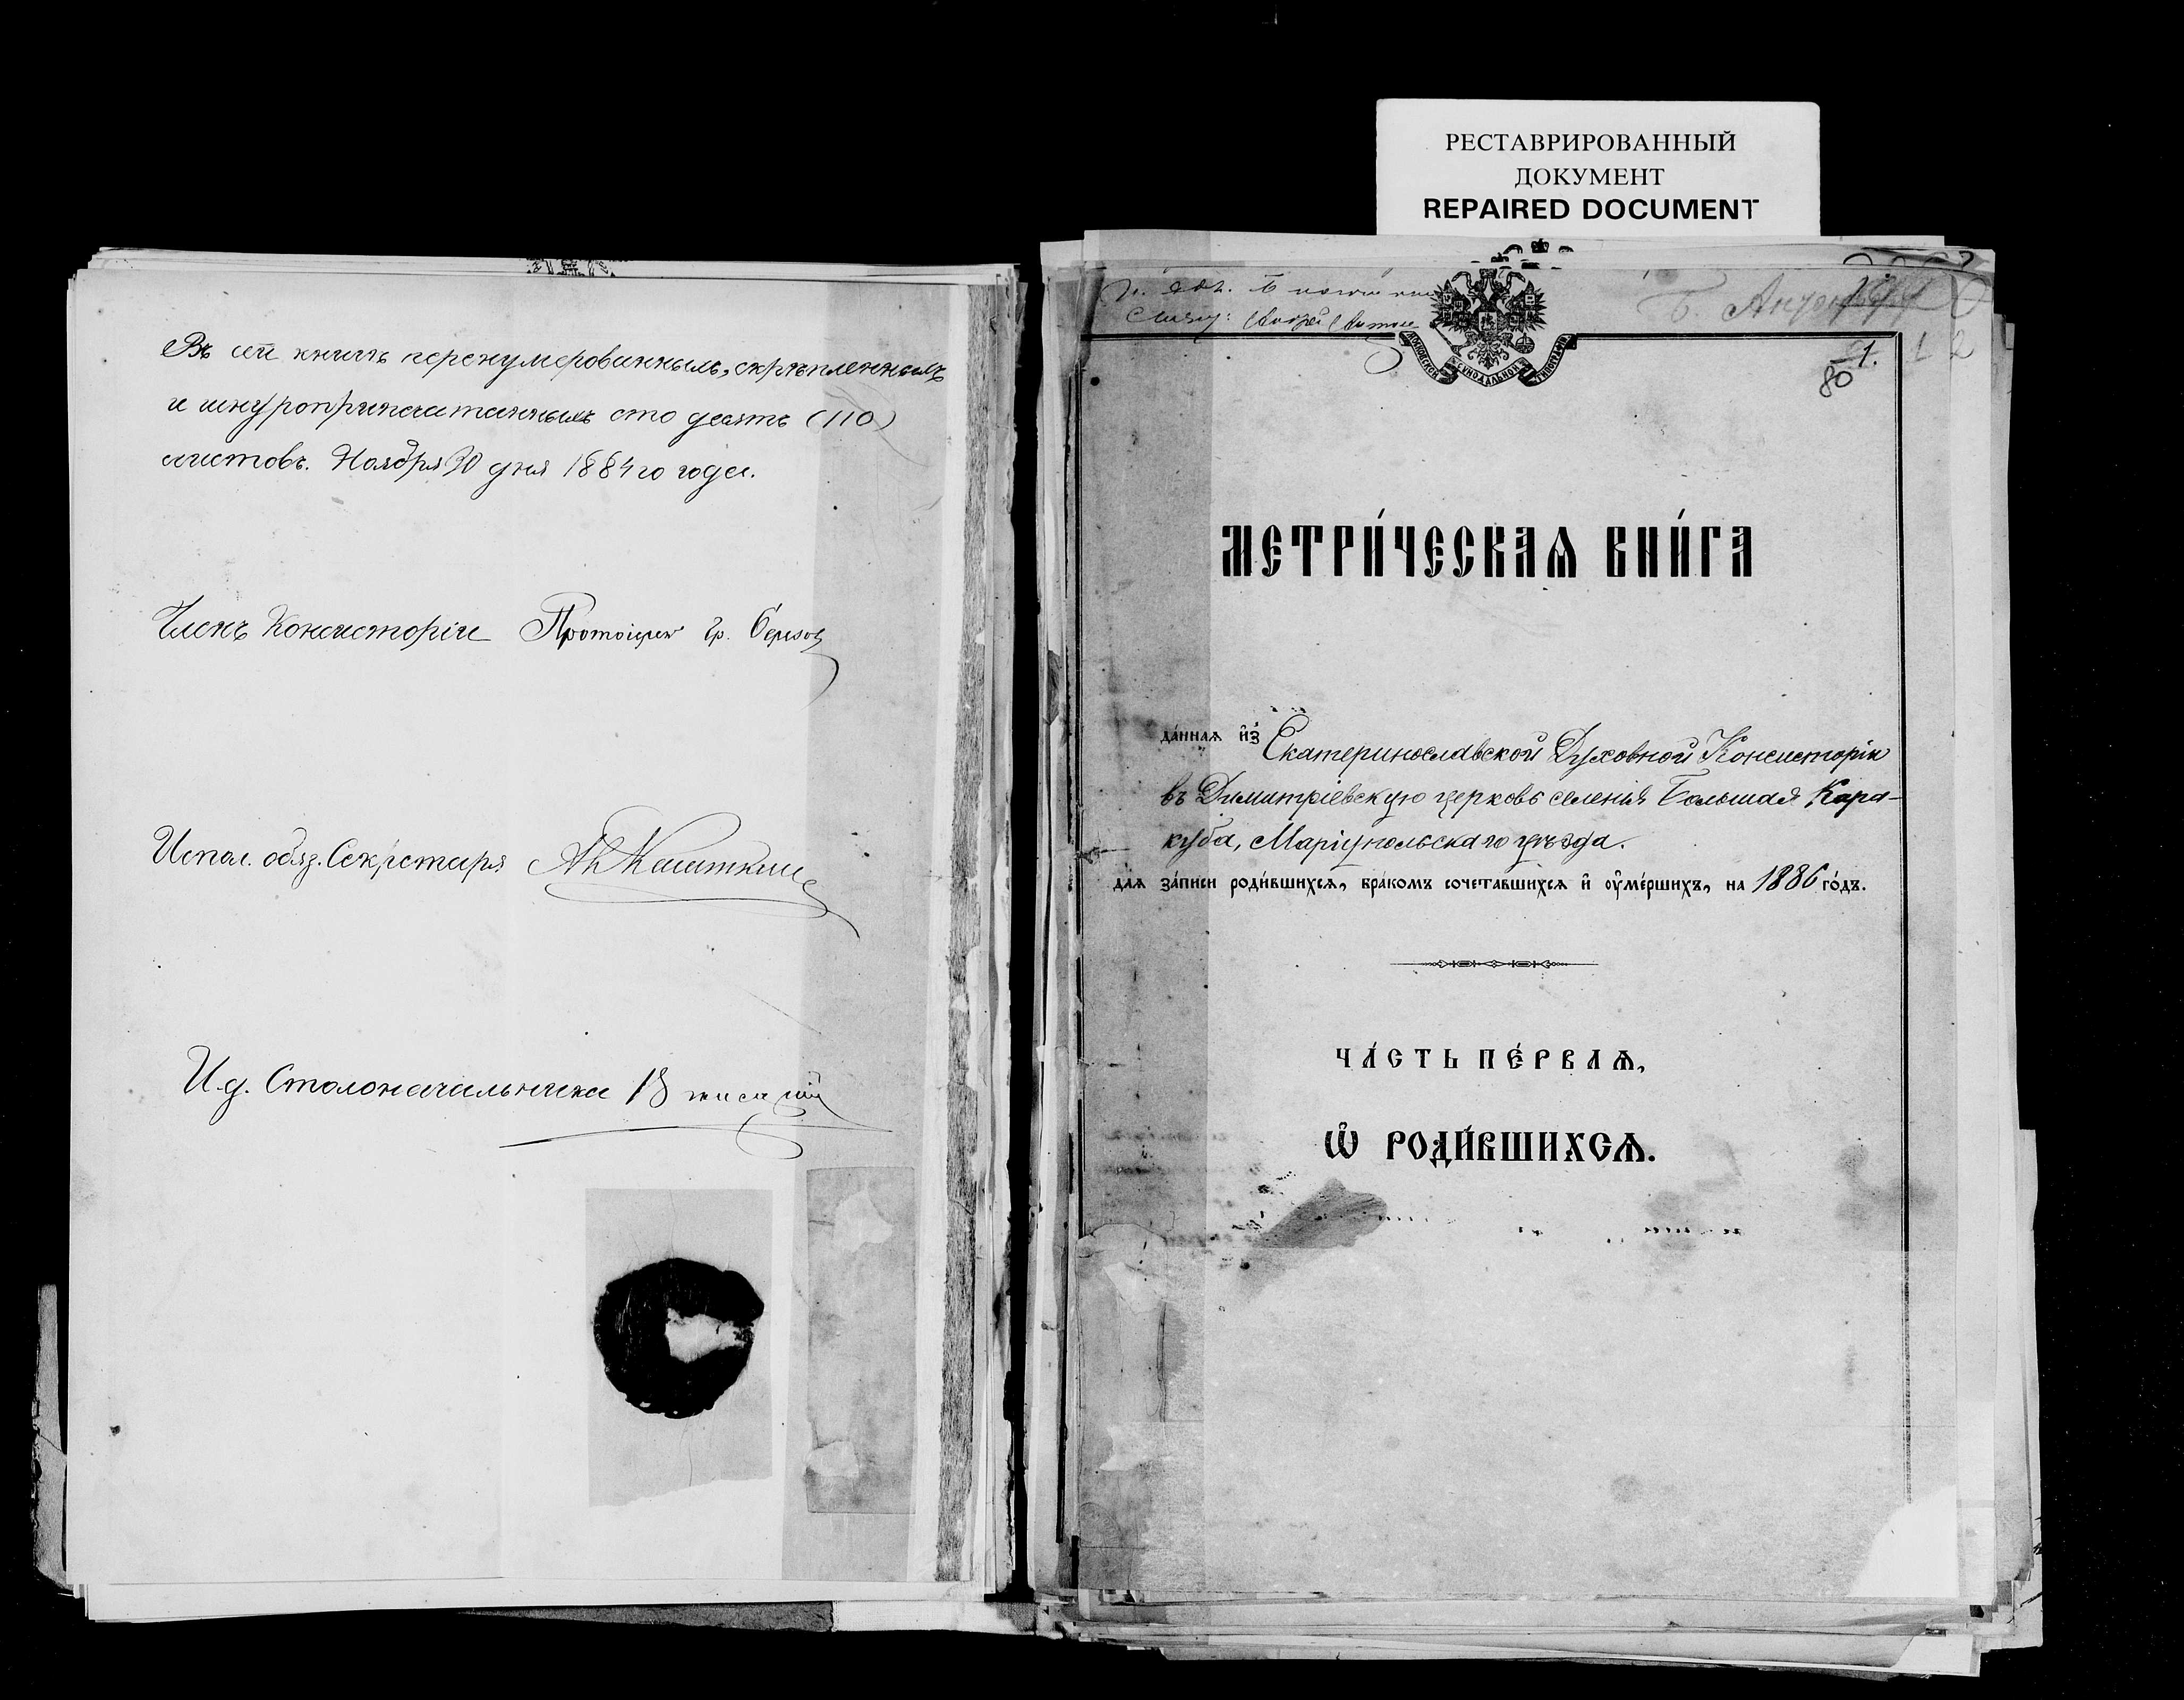 РЕСТАВРИРОВАННЫЙ
ДОКУМЕНТ
REPAIRED DOCUMENT
Въ сей книгѣ перенумерованныхъ, скрѣпленныхъ
и шнуроприпечатанныхъ сто десять (110)
листовъ. Ноября 30 дня 1884 го года.
Членъ Консисторіи Протоіерей Гр.
Испол. обяз. Секретаря
И. д. Столоначальника
МОСКОВСКОЙ СѴНОДАЛЬНОЙ ТИПОГРАФІИ
1.
80
1 2
МЕТРИ́ЧЕСКАѦ КНИ́ГА
да́ннаѧ и҆з̾ Екатеринославской Духовной Консисторіи
въ Димитріевскую церковь селенія Большая Кара-
куба, Маріупольскаго уѣзда.
длѧ за́писи роди́вшихсѧ, бра́комъ сочета́вшихсѧ и҆ ᲂу҆ме́ршихъ, на 1886 го́дъ.
ЧА́СТЬ ПЕ́РВАѦ,
Ѽ РОДИ́ВШИХСѦ.